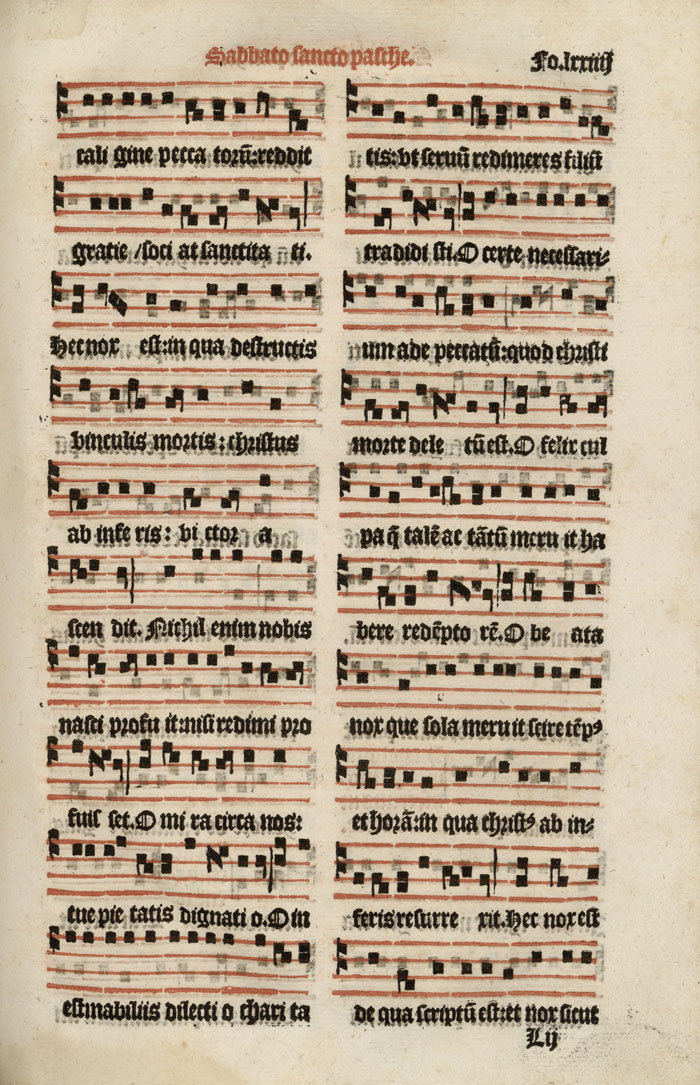 Sabbato sancto pasche.
Fo.lxxiiij
cali gine pecca torū:reddit
gratie /soci at sanctita ti.
Hec nox est:in qua destructis
vinculis mortis:christus
ab infe ris: vi ctor a
scen dit. Nichil enim nobis
nasci profu it:nisi redimi pro
fuis set.O mi ra circa nos:
tue pie tatis dignati o.O in
estmabiliis dilecti o chari ta
tis:vt seruū redimeres filiū
tradidi sti.O certe necessari-
um ade peccatū:quod christi
morte dele tū est.O felix cul
pa q̄ talē ac tātū meru it ha
bere redēpto rē.O be ata
nox que sola meru it scire tēpꝰ
et horā:in qua christꝰ ab in-
feris resurre xit.Hec nox est
de qua scriptū est:et nox sicut
L ij